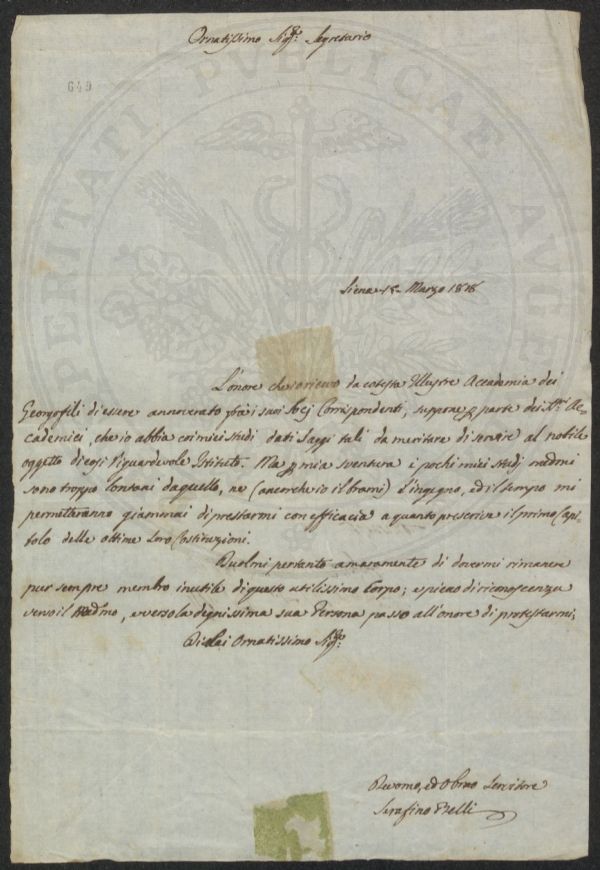 Ornatissimo Sig.re Segretario
649
PROSPERITATI PUBLICAE AUGENDAE
Siena 18 Marzo 1818
L'onore che ricievo da cotesta Illustre Accademia dei
Georgofili di essere annoverato fra i suoi Socj Corrispondenti, suppone p parte dei SS.ri Ac-
cademici, che io abbia coi miei studi dati saggi tali da meritare di servire al nobile
oggetto di egsì riguardevole Istituto. Ma p mia sventura i pochi miei studj medmi
sono troppo lontani da quello, ne (ancorche io il brami) l'ingegno, ed il tempo mi
permetteranno giammai di prestarmi con efficacia a quanto prescrive il primo Capi-
tolo delle ottime loro Costituzioni.
Duolmi pertanto amaramente di dovermi rimanere
pur sempre membro inutile di questo utilissimo Corpo; e pieno di riconoscenza
verso il medmo, e verso la degnissima sua Persona passo all'onore di protestarmi,
Di Lei Ornatissimo Sig.re
Devomo, ed Obbmo Servitore
Serafino Belli